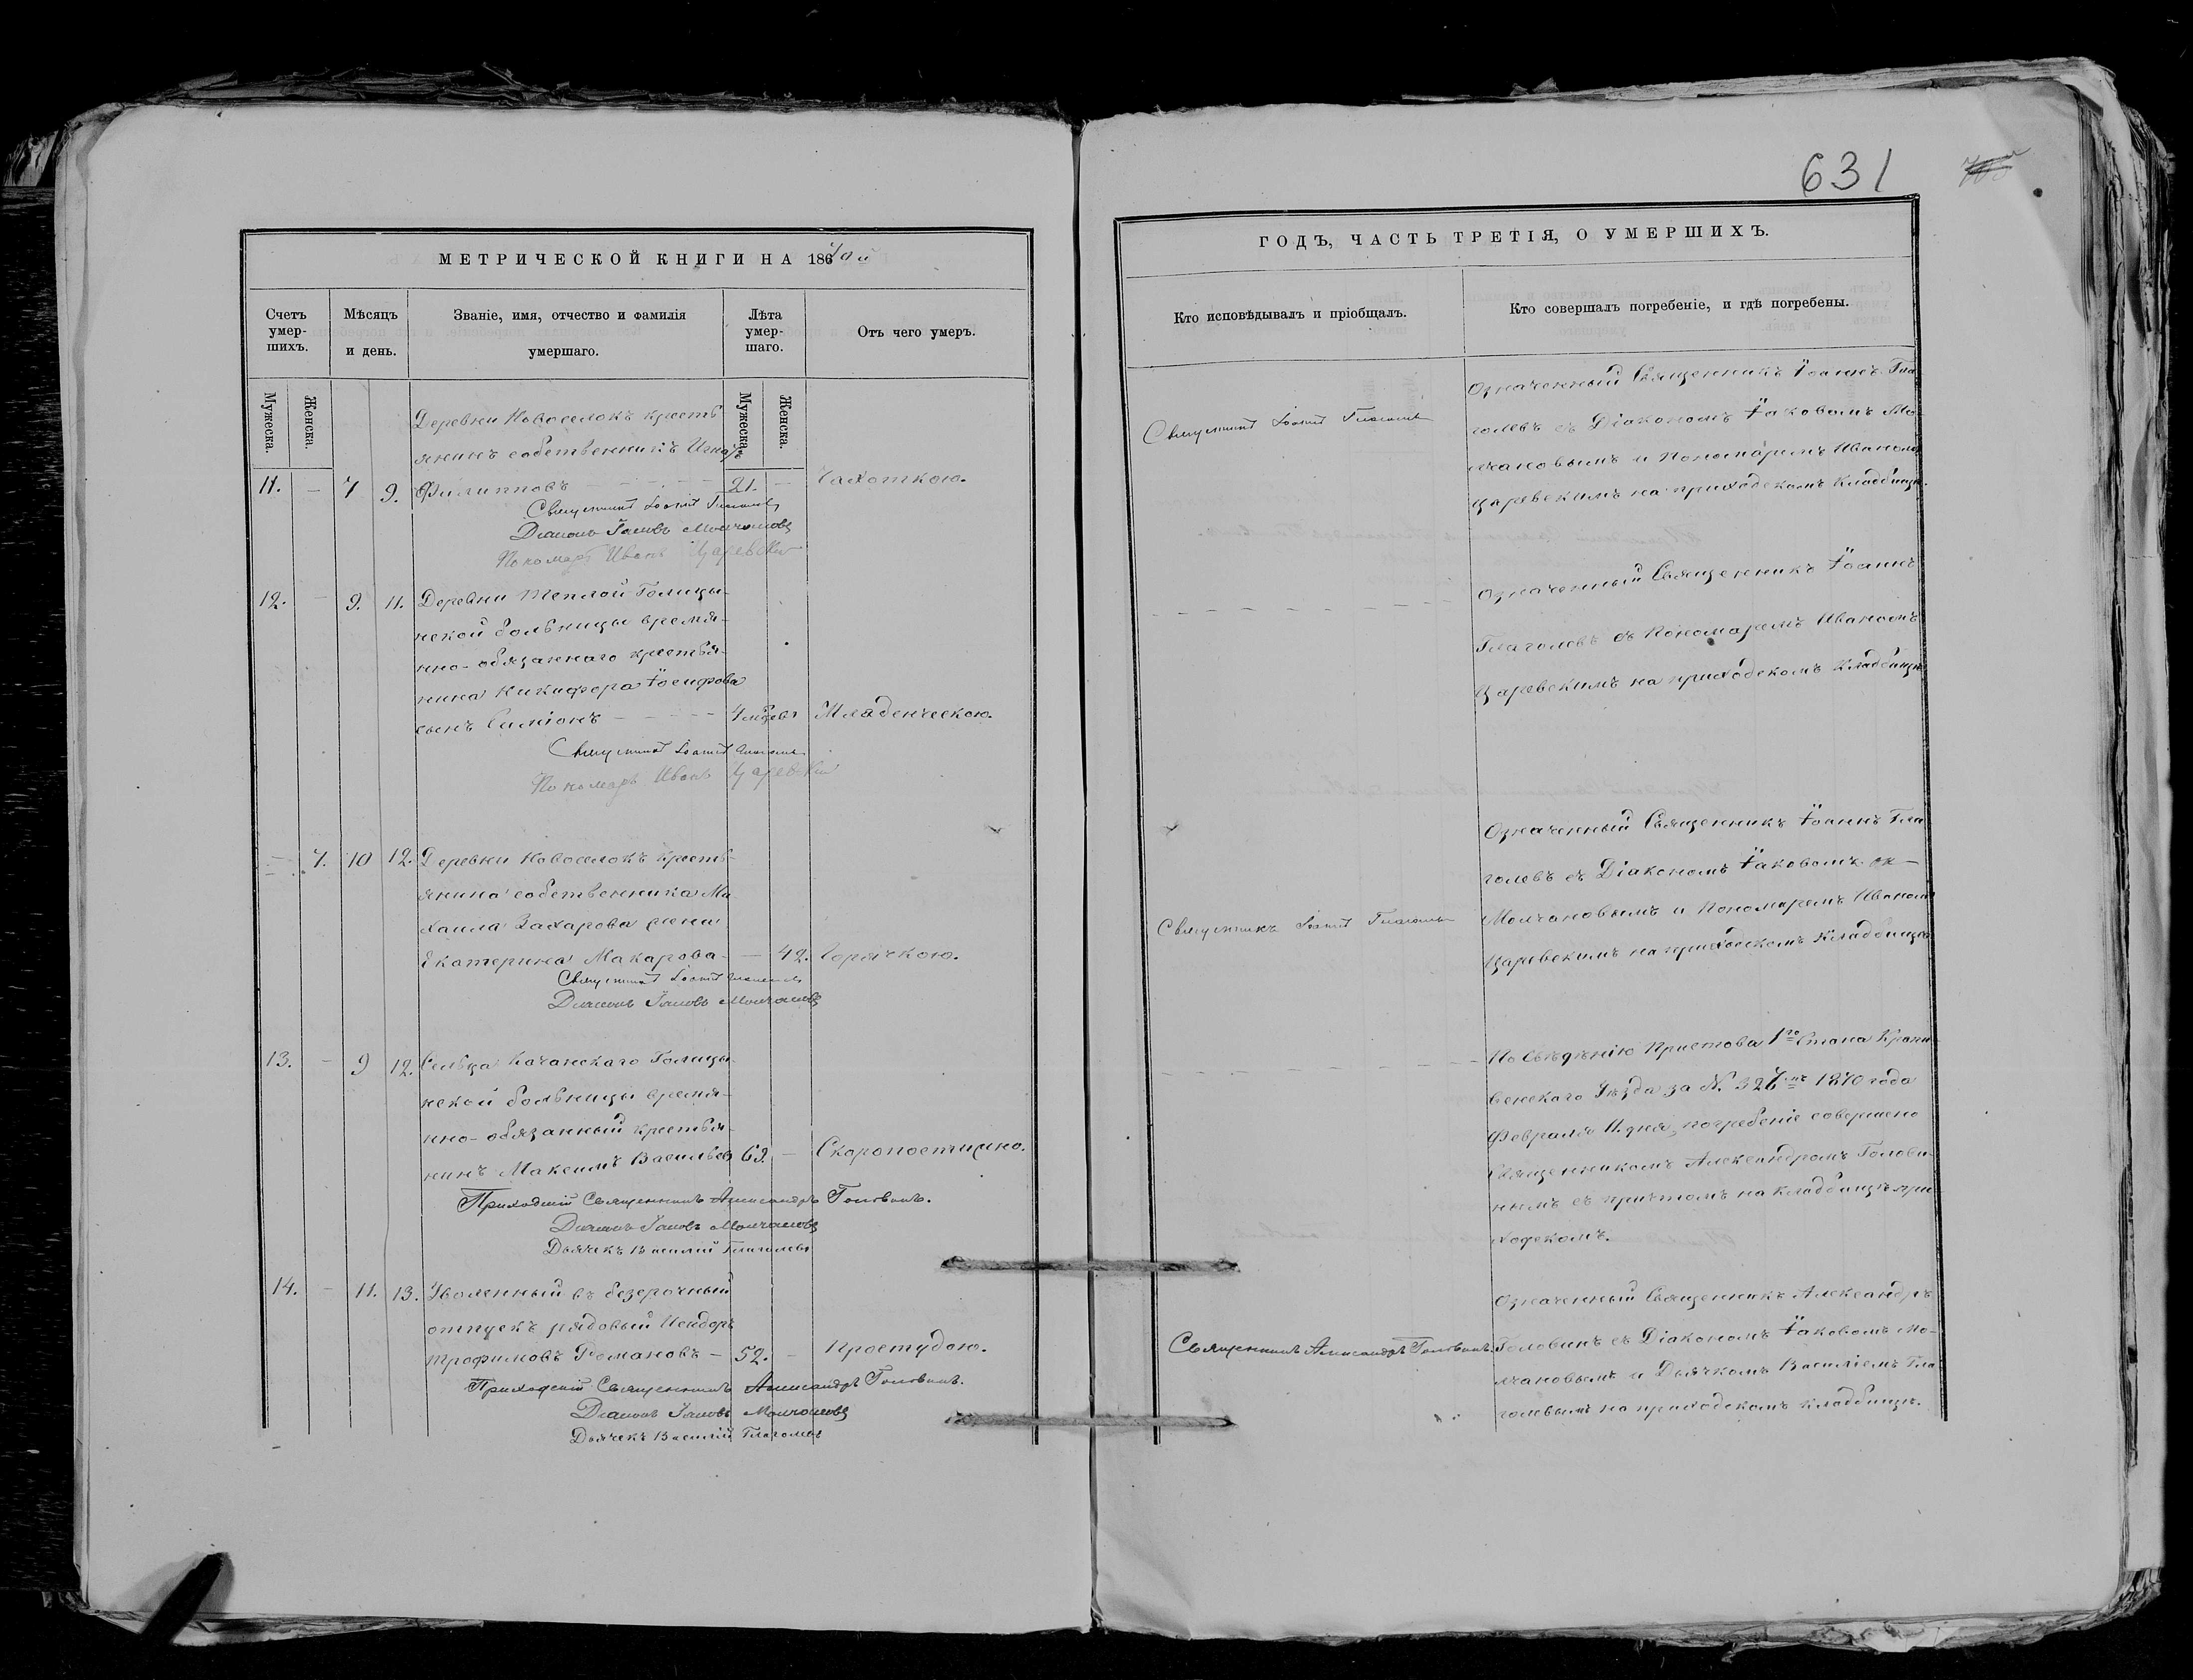 631
МЕТРИЧЕСКОЙ КНИГИ НА 1870й
Счетъ умер-шихъ.
Мѣсяцъ и день.
Званіе, имя, отчество и фамилія умершаго.
Лѣта умер-шаго.
Отъ чего умеръ.
Мужеска.
Женска.
Мужеска.
Женска.
Деревни Новоселокъ кресть
янинъ собственникъ
11. – 7 9. Филипповъ – – – 21. – Чахоткою.
Священникъ Іоаннъ Глаголевъ
Діаконъ Іаковъ Молчановъ
Пономарь Иванъ Царевскій
12. – 9. 11. Деревни Теплой Голицы-
нской больницы время-
нно-обязаннаго крестья-
нина Никифора Іосифова
сынъ Симіонъ – – – 4 Младенческою.
Священникъ Іоаннъ Глаголевъ
Пономарь Иванъ Царевскій
– 7. 10 12. Деревни Новоселокъ кресть-
янина собственника Ми
хаила Захарова жена
Екатерина Макарова – – 42. Горячкою.
Священникъ Іоаннъ Глаголевъ
Діаконъ Іаковъ Молчановъ
13. – 9 12. Сельца Качанскаго Голицы-
нской больницы время-
нно-обязанный крестья-
нинъ Максимъ Васильевъ 63. – Скоропостижно.
Приходскій Священникъ Александръ Головинъ.
Діаконъ Іаковъ Молчановъ
Дьячекъ Василій Глаголевъ
14. – 11. 13. Уволенный въ безсрочный
отпускъ рядовый
Трофимовъ Романовъ – 52. – Простудою.
Приходскій Священникъ Александръ Головинъ.
Діаконъ Іаковъ Молчановъ
Дьячекъ Василій Глаголевъ
ГОДЪ, ЧАСТЬ ТРЕТІЯ, О УМЕРШИХЪ.
Кто исповѣдывалъ и пріобщалъ.
Кто совершалъ погребеніе, и гдѣ погребены.
Священникъ Іоаннъ Глаголевъ
Означенный Священникъ Іоаннъ Гла
голевъ съ Діакономъ Іаковомъ Мо-
лчановымъ и Пономаремъ Иваномъ
Царевскимъ на приходскомъ кладбищѣ.
Означенный Священникъ Іоаннъ
Глаголевъ съ Пономаремъ Иваномъ
Царевскимъ на приходскомъ кладбищѣ
Священникъ Іоаннъ Глаголевъ
Означенный Священникъ Іоаннъ Гла
голевъ съ Діакономъ Іаковомъ
Молчановымъ и Пономаремъ Иваномъ
Царевскимъ на приходскомъ кладбищѣ
По Свѣденію Пристова 1го Стана Крапи-
венскаго Уѣзда за №. 327мъ 1870 года
Февраля 11. дня, погребеніе совершено
Священникомъ Александромъ Голови-
нымъ съ причтомъ на кладбищѣ при-
ходскомъ.
Священникъ Александръ Головинъ.
Означенный Священникъ Александръ
Головинъ съ Діакономъ Іаковомъ Мо-
лчановымъ и Дьячкомъ Василіемъ Гла
голевымъ на приходскомъ кладбищѣ.